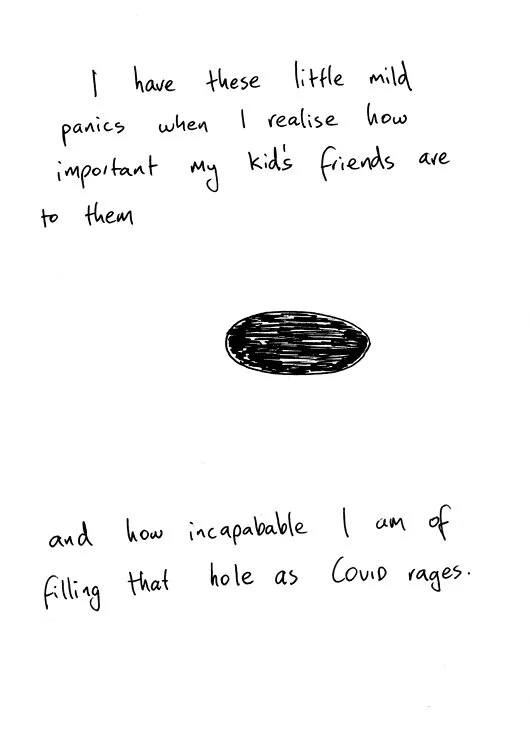 I have these little mild
panics when I realise how
important my kid's friends are
to them
and how incapabable I am of
filling that hole as COVID rages.